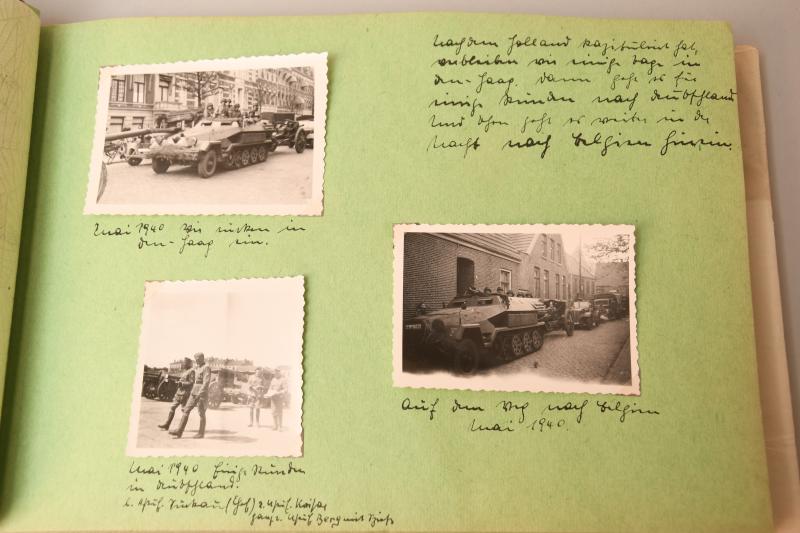 Nachdem Holland kapituliert hat,
verbleiben wir einige Tage in
den-Haag. Dann geht es für
einige Stunden nach Deutschland
und schon geht es weiter in der
Nacht nach Belgien hinein.
Mai 1940 Wir rücken in
den-Haag ein.
Auf dem Weg nach Belgien
Mai 1940.
Mai 1940 Einige Stunden
in Deutschland.
(Chef) Kaiser
Berg mit